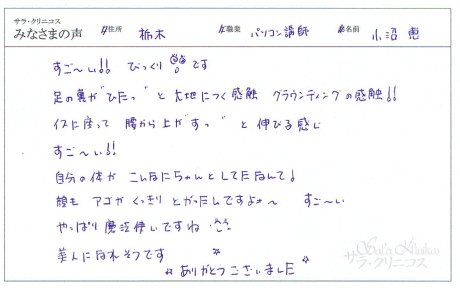 サラ・クリニコス
みなさまの声 住所 栃木 職業 パソコン講師 お名前 小沼 恵
すご〜い!! びっくり です
足の裏が"ひたっ"と大地につく感触 グラウンディングの感触!!
イスに座って 腰から上が"すっ"と 伸びる感じ
すご〜い!!
自分の体が こんなにちゃんとしてたなんて!
顔も アゴが くっきり とがったんですよォ〜 すご〜い
やっぱり魔法使いですね
美人になれそうです
ありがとうございました
Sala Klinikos
サラ・クリニコス